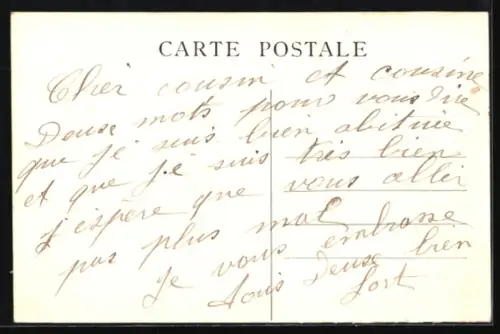 CARTE POSTALE
Cher cousin et cousine
Deuse mots pour vous dire
que je suis bien abituée
et que je suis très bien
j'espère que vous aller
pas plus mal
je vous embrasse
tous Deuse bien
fort